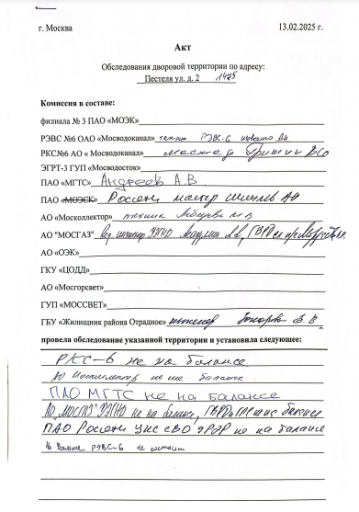 г. Москва 13.02.2025 г.
Акт
Обследования дворовой территории по адресу:
Пестеля ул. д. 2
Комиссия в составе:
филиала № 3 ПАО «МОЭК»
РЭВС №6 ОАО «Мосводоканал» техник РЭВС-6
РКС№6 АО « Мосводоканал» мастер Гришин
ЭГРТ-3 ГУП «Мосводосток»
ПАО «МГТС» Андреев А.В
ПАО «МОЭСК» Россети мастер
АО «Москоллектор» техник
АО "МОСГАЗ"
АО «ОЭК»
ГКУ «ЦОДД»
АО «Мосгорсвет»
ГУП «МОССВЕТ»
ГБУ «Жилищник района Отрадное» инженер
провела обследование указанной территории и установила следующее:
РКС-6 не на балансе
АО Москоллектор не на балансе
ПАО МГТС не на балансе
АО "МОСГАЗ" не на балансе,
ПАО Россети УКС СВО не на балансе
На балансе РЭВС-6 не состоит